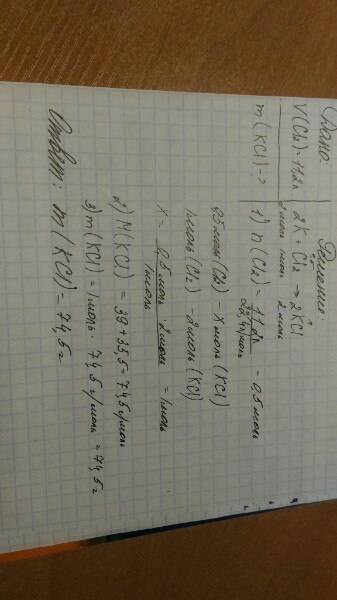 Дано:
V(Cl2)=11,2л
m(KCl)-?
Решение:
2K + Cl2 → 2KCl
2 моль 1моль 2 моль
1) n(Cl2) = 11,2л / 22,4л/моль = 0,5 моль
0,5 моль (Cl2) - x моль (KCl)
1моль (Cl2) - 2моль (KCl)
x = 0,5 моль · 2моль / 1моль = 1моль
2) M(KCl) = 39+35,5=74,5 г/моль
3) m(KCl) = 1моль · 74,5 г/моль = 74,5 г
Ответ: m(KCl) = 74,5 г